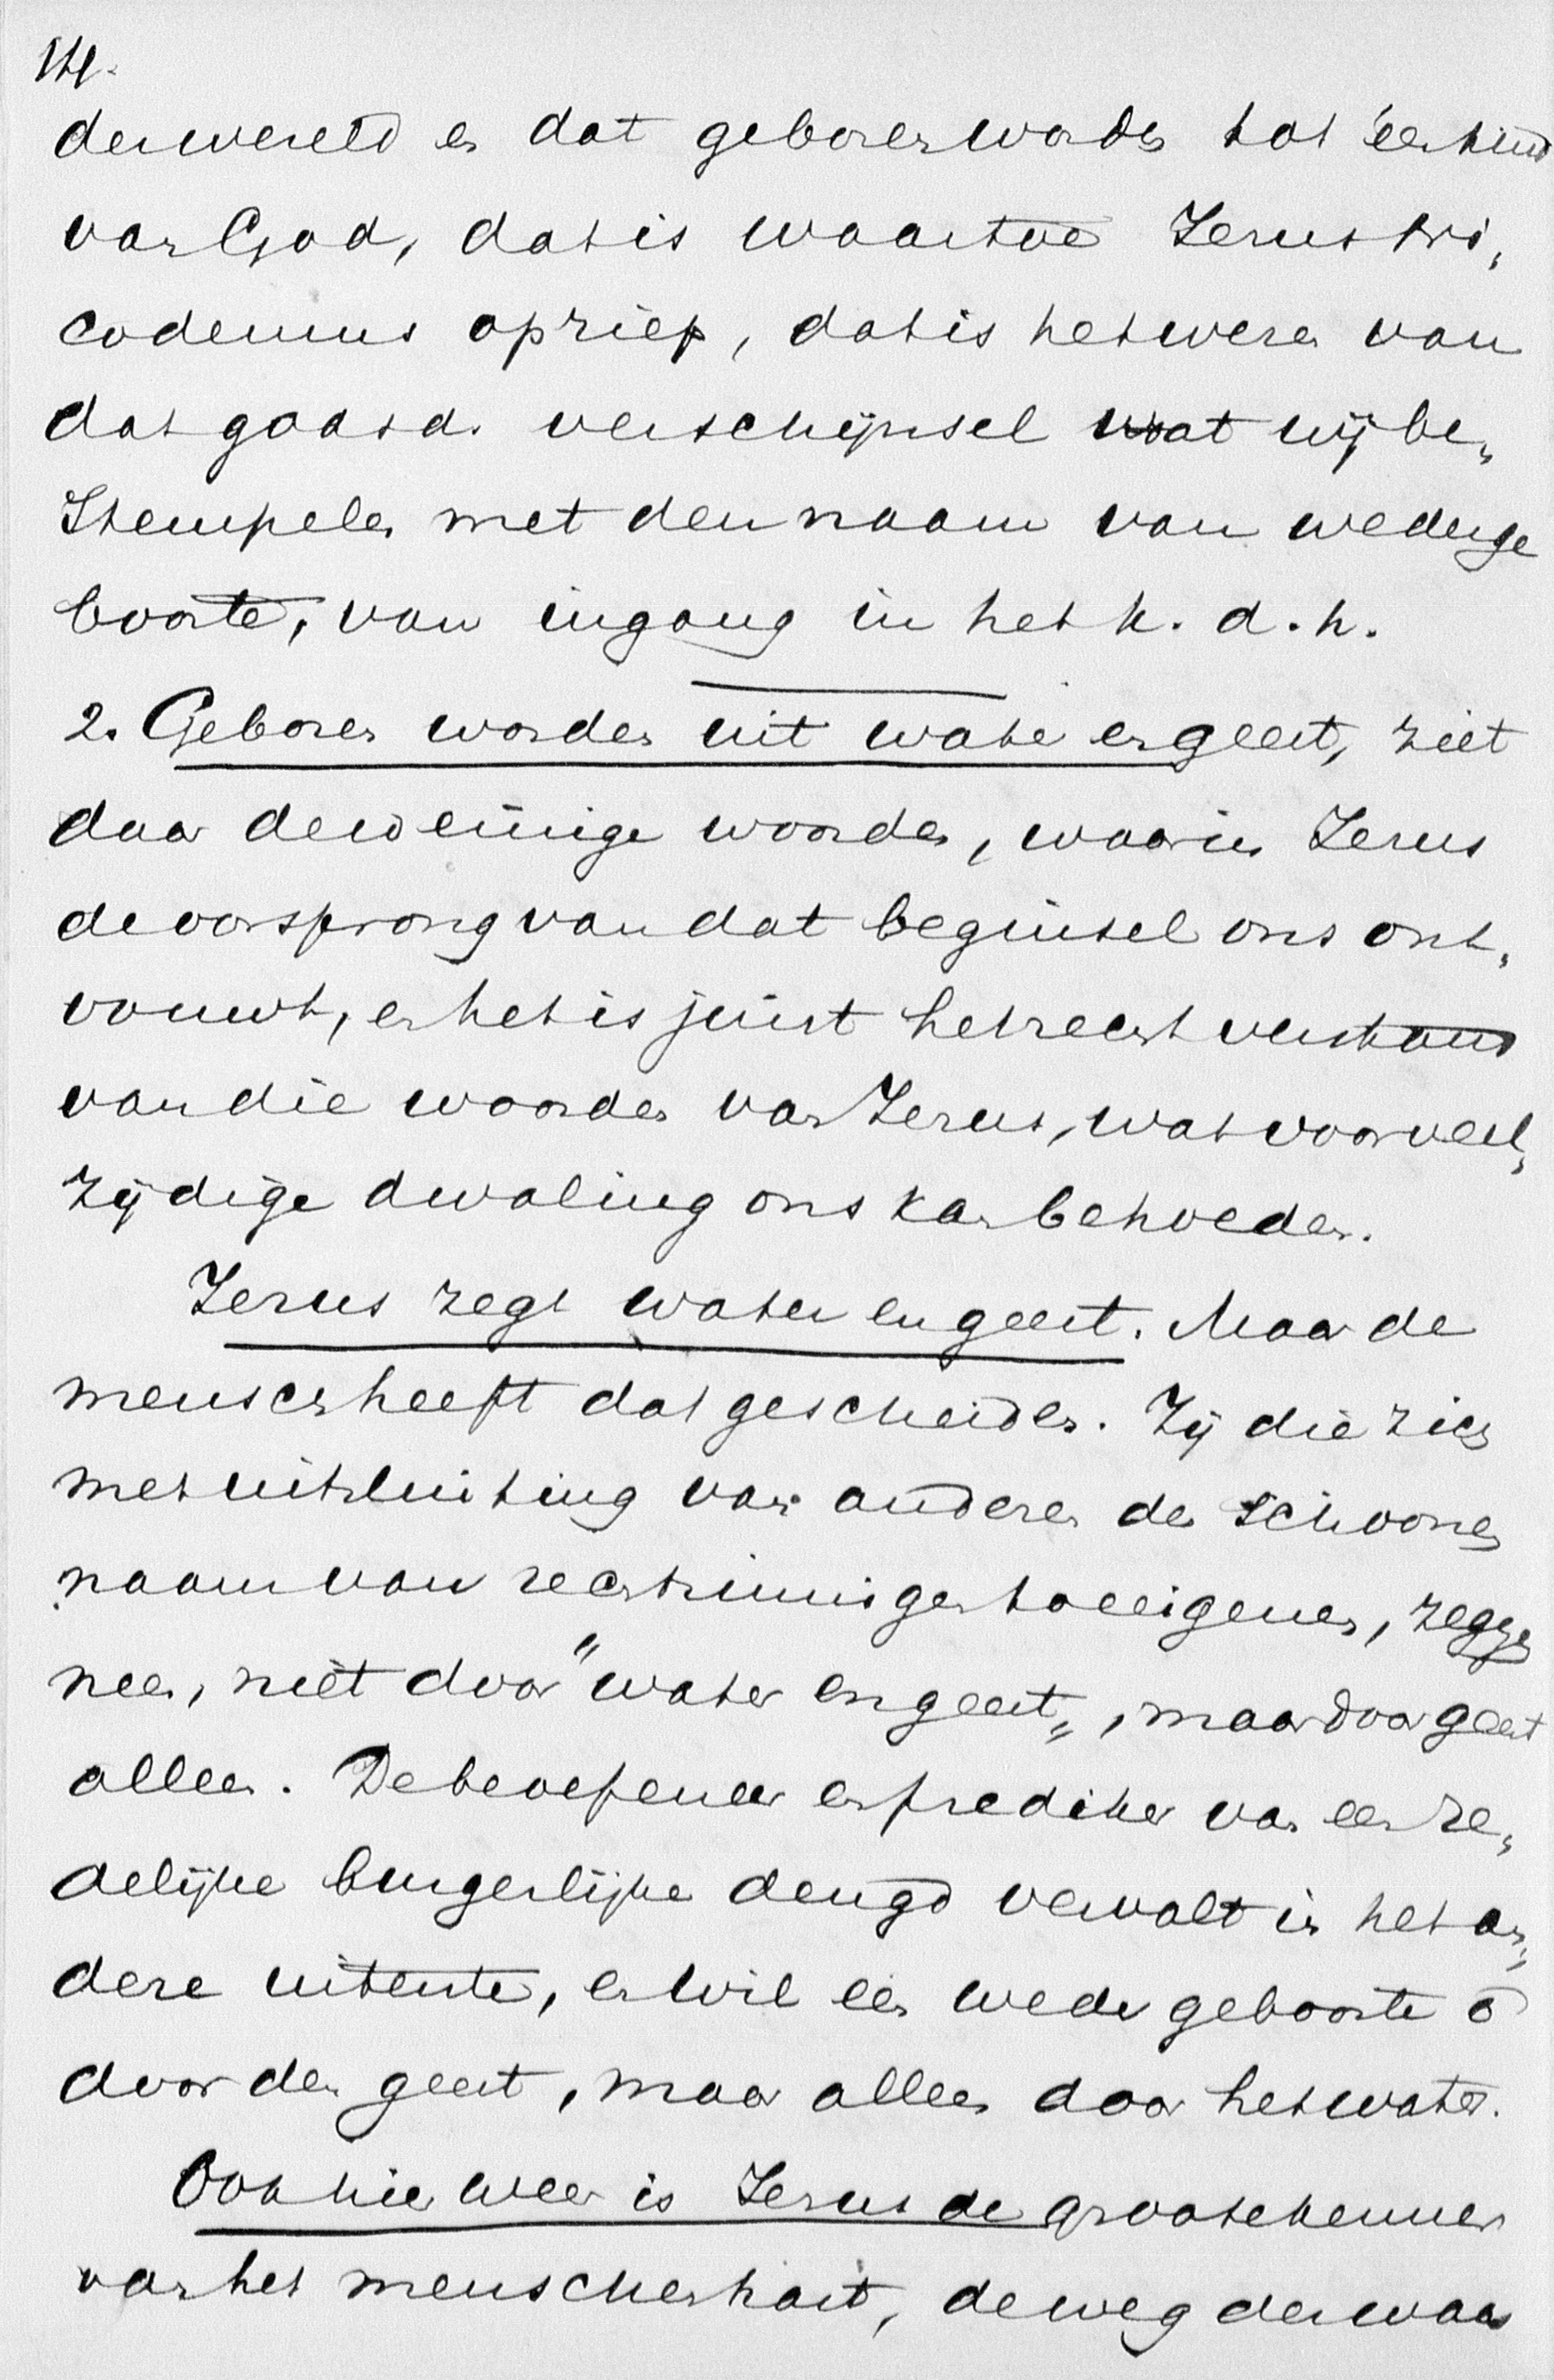 14.
der wereld en dat geboren worden tot een kind
van God, dat is waartoe Jezus Ni„
codemus opriep, dat is het wezen van
dat godsd. verschijnsel wat wij be„
stempelen met den naam van wederge
boorte, van ingang in het k. d. h.
2. Geboren worden uit water en geest, ziet
daar de weinige woorden, waarin Jezus
de oorsprong van dat beginsel ons ont„
vouwt, en het is juist het recht verstand
van die woorden van Jezus, wat voor veel„
zijdige dwaling ons kan behoeden.
Jezus zegt water en geest. Maar de
mensch heeft dat gescheiden. Zij die zich
met uitsluiting van anderen den schoonen
naam van rechtzinnigen toeeigenen, zeggen
neen, niet door "water en geest„, maar door geest
alleen. De beoefenaar en prediker van een ze„
delijke burgerlijke deugd vervalt in het an„
dere uiterste, en wil een wedergeboorte ō
door den geest, maar alleen door het water.
Ook hier weer is Jezus de groote kenner
van het menschenhart, de weg der waar